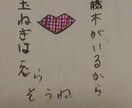 藤木がいるから
玉ねぎはえら
そうね